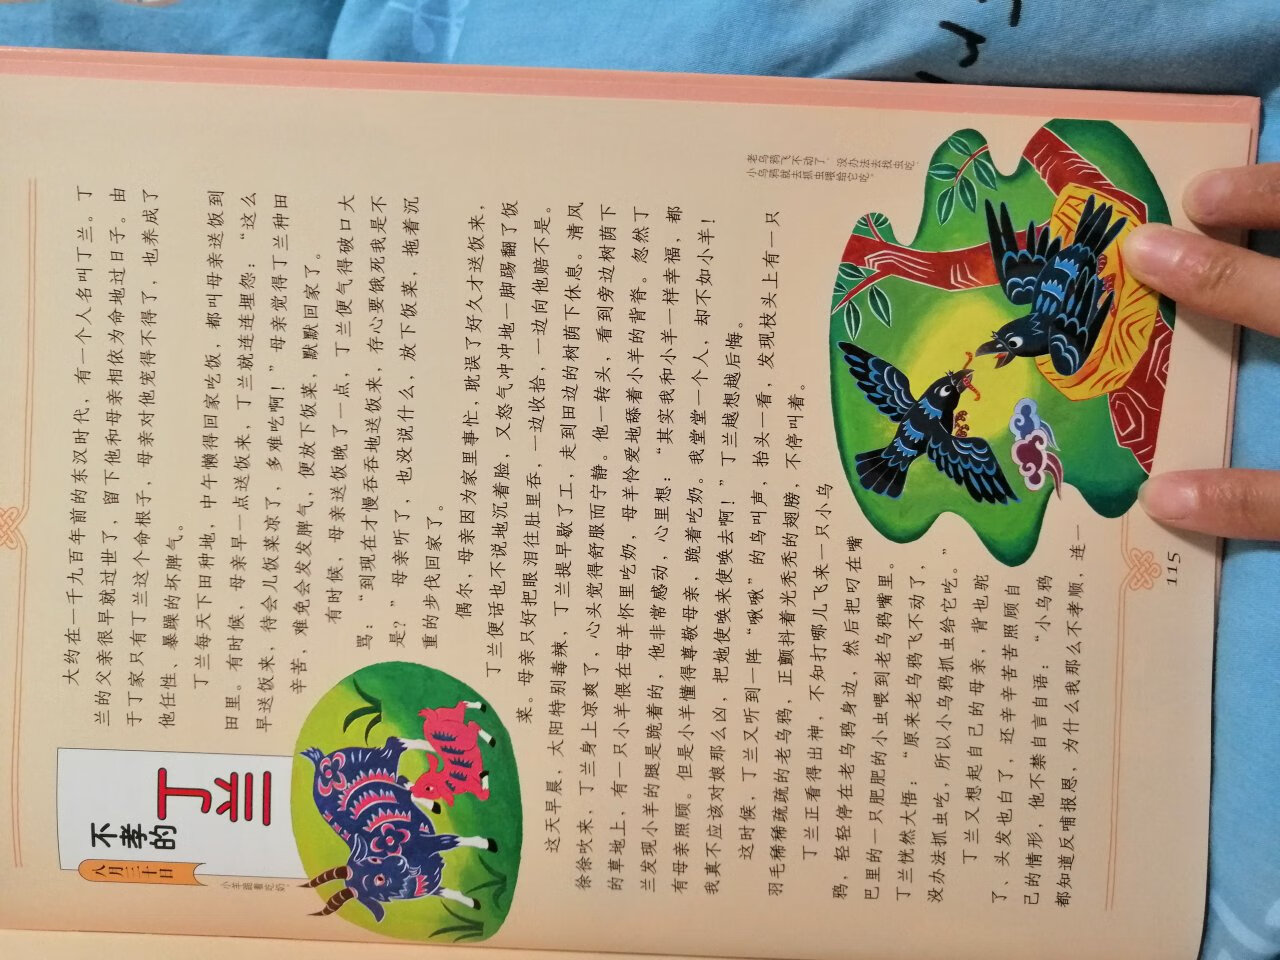 八月三十日
不孝的
丁兰
大约在一千九百年前的东汉时代，有一个人名叫丁兰。丁
兰的父亲很早就过世了，留下他和母亲相依为命地过日子。由
于丁家只有丁兰这个命根子，母亲对他宠得不得了，也养成了
他任性、暴躁的坏脾气。
丁兰每天下田种地，中午懒得回家吃饭，都叫母亲送饭到
田里。有时候，母亲早一点送饭来，丁兰就连连埋怨：“这么
早送饭来，待会儿饭菜凉了，多难吃啊！”母亲觉得丁兰种田
辛苦，难免会发发脾气，便放下饭菜，默默回家了。
有时候，母亲送饭晚了一点，丁兰便气得破口大
骂：“到现在才慢吞吞地送饭来，存心要饿死我是不
是？”母亲听了，也没说什么，放下饭菜，拖着沉
重的步伐回家了。
偶尔，母亲因为家里事忙，耽误了好久才送饭来，
丁兰便话也不说地沉着脸，又怒气冲冲地一脚踢翻了饭
菜。母亲只好把眼泪往肚里吞，一边收拾，一边向他赔不是。
这天早晨，太阳特别毒辣，丁兰提早歇了工，走到田边的树荫下休息。清风
徐徐吹来，丁兰身上凉爽了，心头觉得舒服而宁静。他一转头，看到旁边树荫下
的草地上，有一只小羊偎在母羊怀里吃奶，母羊怜爱地舔着小羊的背脊。忽然丁
兰发现小羊的腿是跪着的，他非常感动，心里想：“其实我和小羊一样幸福，都
有母亲照顾。但是小羊懂得尊敬母亲，跪着吃奶。我堂堂一个人，却不如小羊！
我真不应该对娘那么凶，把她使唤来使唤去啊！”丁兰越想越后悔。
这时候，丁兰又听到一阵“啾啾”的鸟叫声，抬头一看，发现枝头上有一只
羽毛稀稀疏疏的老乌鸦，正颤抖着光秃秃的翅膀，不停叫着。
丁兰正看得出神，不知打哪儿飞来一只小乌
鸦，轻轻停在老乌鸦身边，然后把叼在嘴
巴里的一只肥肥的小虫喂到老乌鸦嘴里。
丁兰恍然大悟：“原来老乌鸦飞不动了，
没办法抓虫吃，所以小乌鸦抓虫给它吃。”
丁兰又想起自己的母亲，背也驼
了、头发也白了，还辛辛苦苦照顾自
己的情形，他不禁自言自语：“小乌鸦
都知道反哺报恩，为什么我那么不孝顺，连一
小羊跪着吃奶
老乌鸦飞不动了，没办法去找虫吃，
小乌鸦就去抓虫喂给它吃。
115